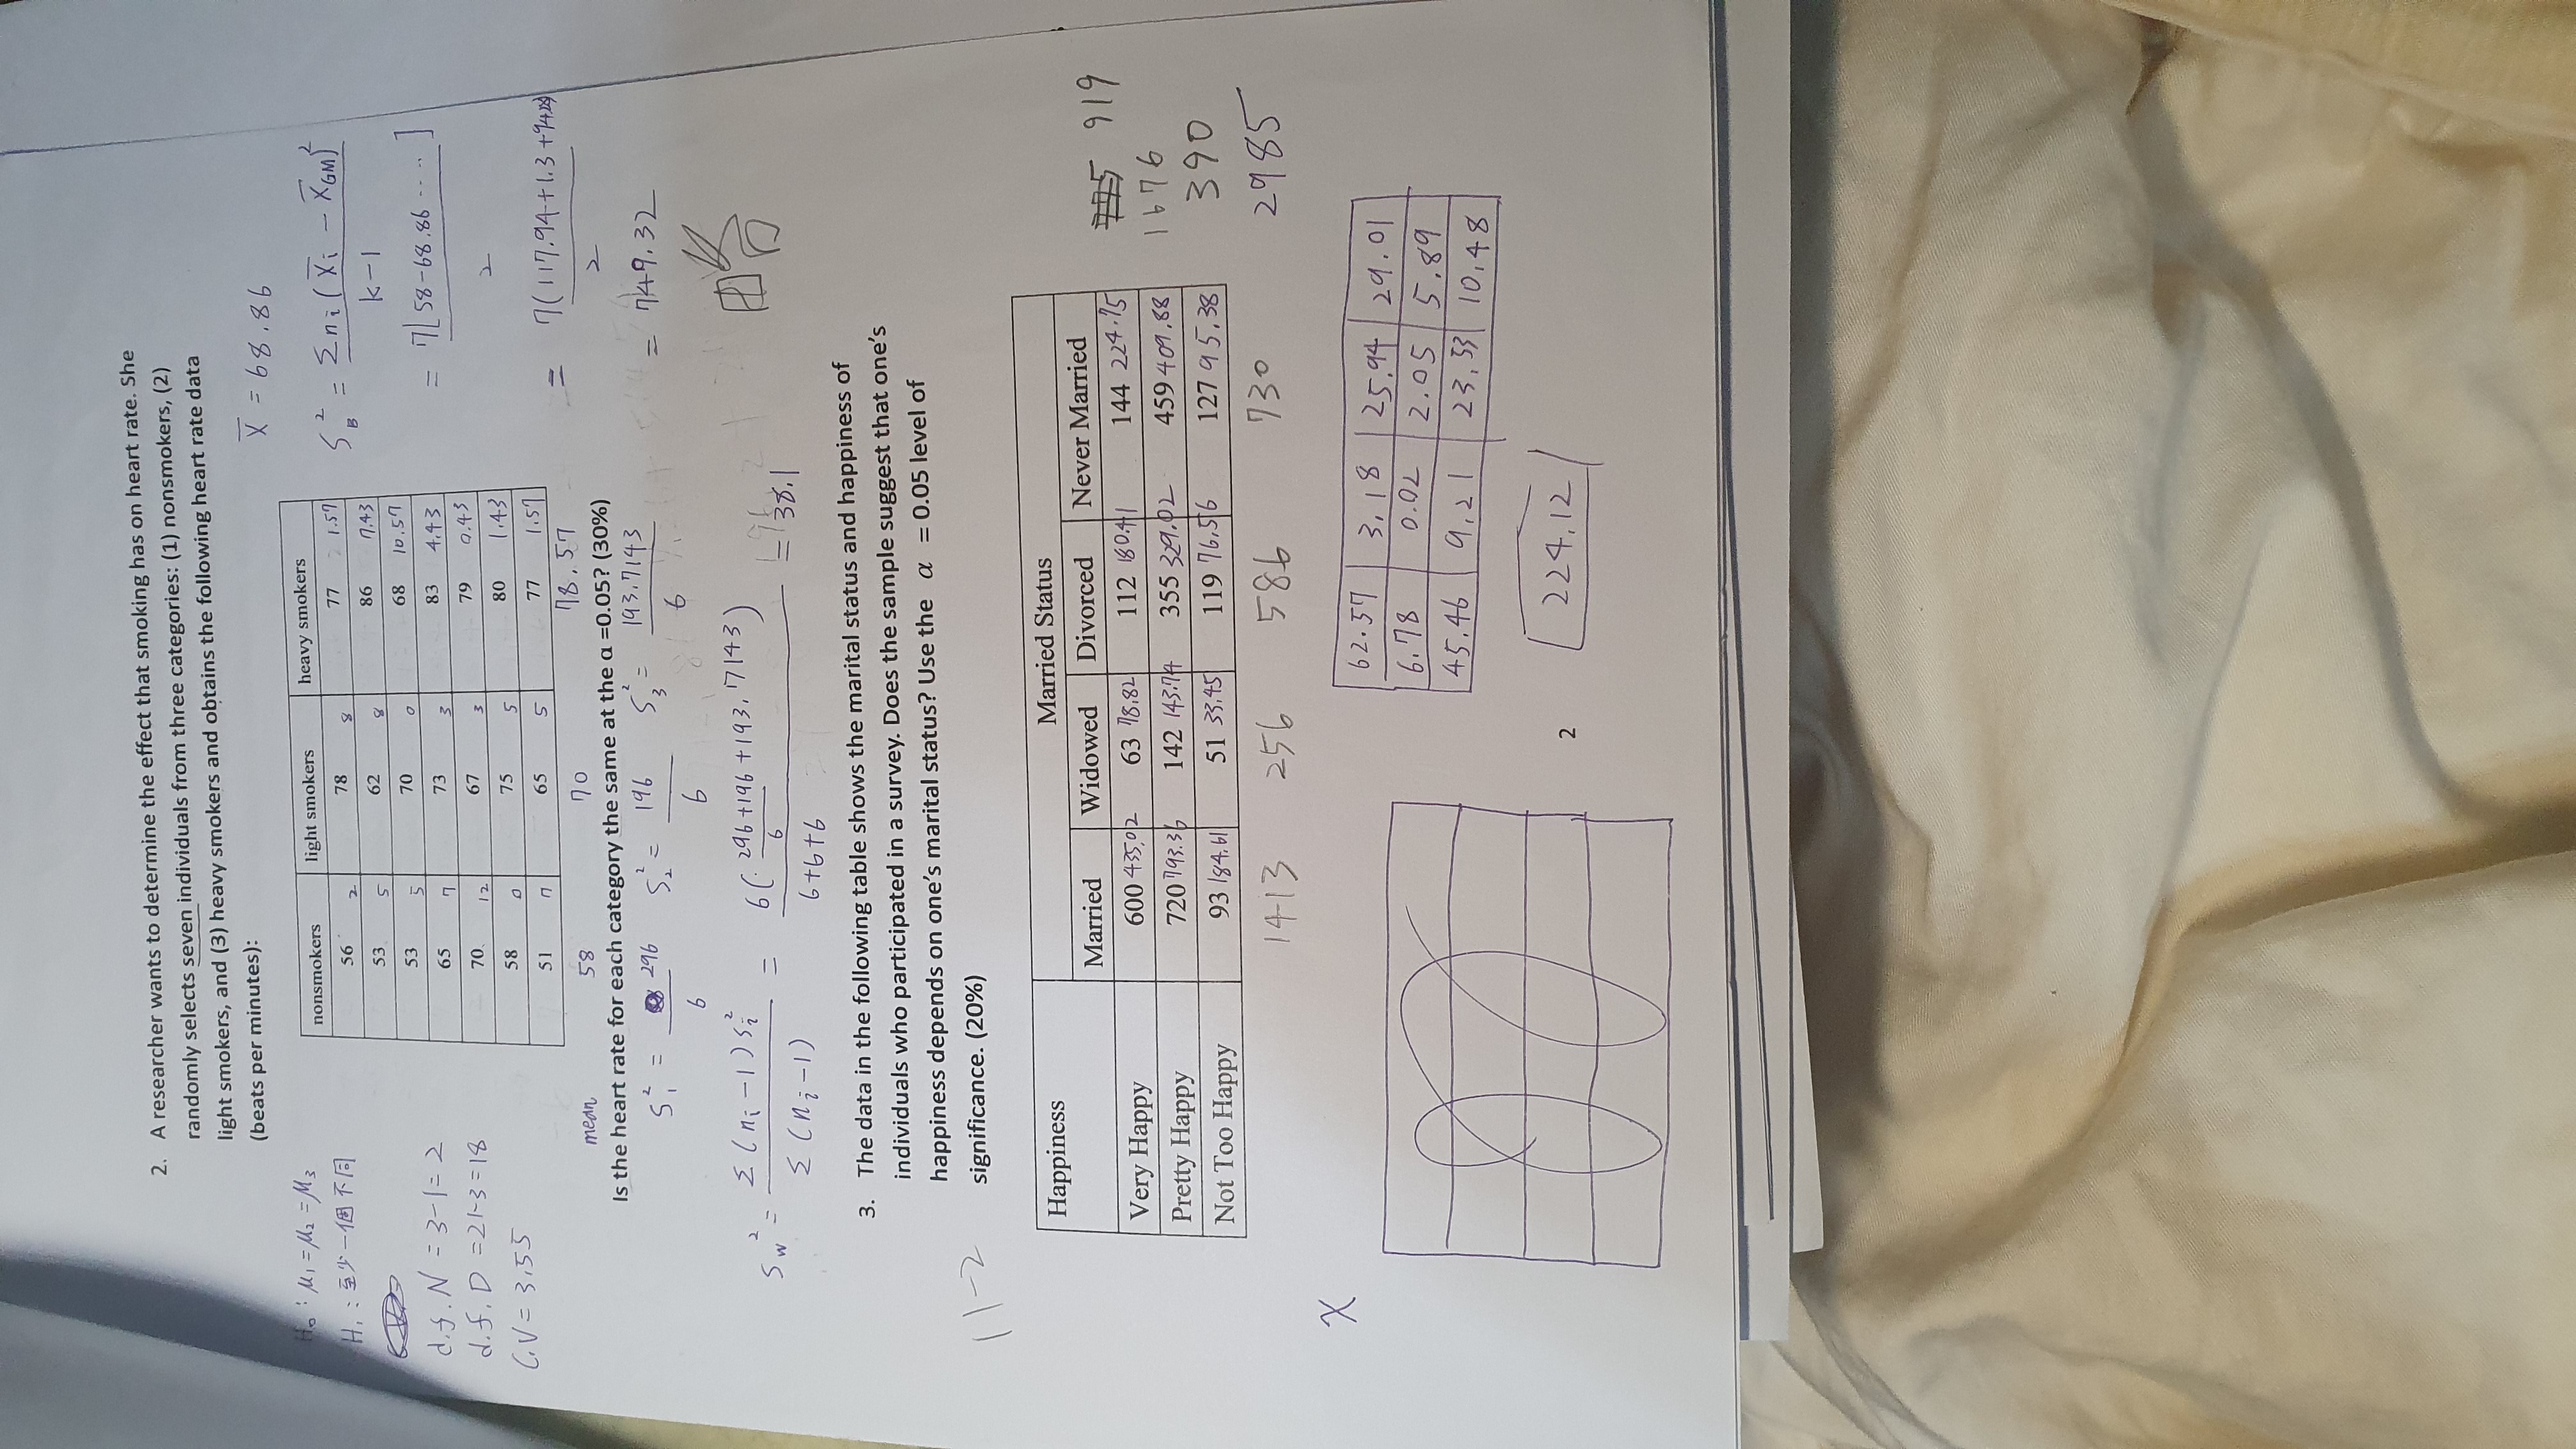 2. A researcher wants to determine the effect that smoking has on heart rate. She
randomly selects seven individuals from three categories: (1) nonsmokers, (2)
light smokers, and (3) heavy smokers and obtains the following heart rate data
(beats per minutes):
X̄ = 68.86
H₀ : μ₁ = μ₂ = μ₃
H₁ : 至少一個不同
d.f. N = 3-1 = 2
d.f. D = 21-3 = 18
C.V = 3.55
nonsmokers light smokers heavy smokers
56 2 78 8 77 1.57
53 5 62 8 86 7.43
53 5 70 0 68 10.57
65 7 73 3 83 4.43
70 12 67 3 79 0.43
58 0 75 5 80 1.43
51 7 65 5 77 1.57
mean 58 70 78.57
S_B² = Σnᵢ(X̄ᵢ - X̄_GM)² / k-1
= 7[58-68.86 ....] / 2
= 7(117.94+1.3+94.28) / 2
= 749.32
Is the heart rate for each category the same at the α =0.05? (30%)
S₁² = 296 / 6 S₂² = 196 / 6 S₃² = 193.7143 / 6
S_W² = Σ(nᵢ-1)Sᵢ² / Σ(nᵢ-1) = 6(296+196+193.7143 / 6) / 6+6+6 = 38.1
3. The data in the following table shows the marital status and happiness of
individuals who participated in a survey. Does the sample suggest that one's
happiness depends on one's marital status? Use the α = 0.05 level of
significance. (20%)
11-2
Happiness Married Status
Married Widowed Divorced Never Married
Very Happy 600 435.02 63 78.82 112 180.41 144 224.75 919
Pretty Happy 720 793.36 142 143.74 355 329.02 459 409.88 1676
Not Too Happy 93 184.61 51 33.45 119 76.56 127 95.38 390
1413 256 586 730 2985
X
62.57 3.18 25.94 29.01
6.78 0.02 2.05 5.89
45.46 9.21 23.53 10.48
224.12
2